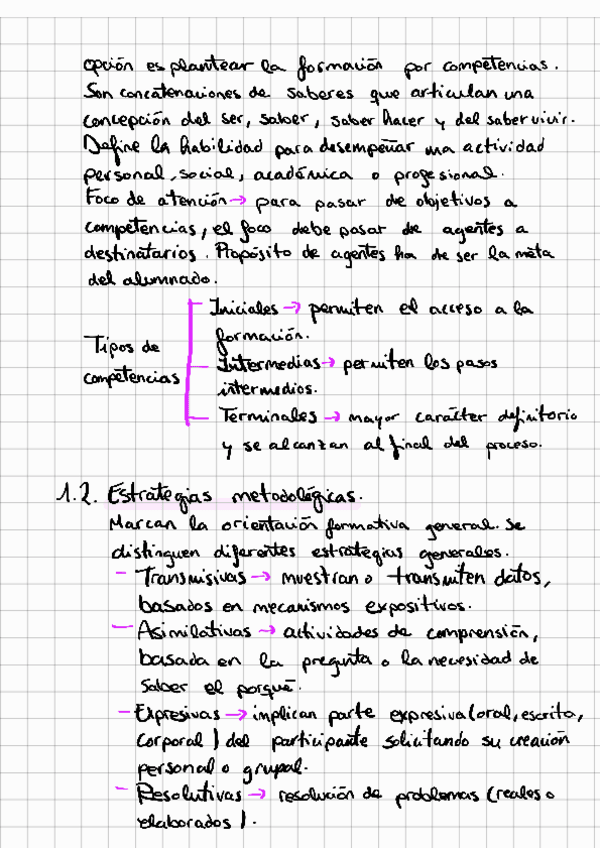 opción es plantear la formación por competencias.
Son concatenaciones de saberes que articulan una
concepción del ser, saber, saber hacer y del saber vivir.
Define la habilidad para desempeñar una actividad
personal, social, académica o profesional.
Foco de atención → para pasar de objetivos a
competencias, el foco debe pasar de agentes a
destinatarios. Propósito de agentes ha de ser la meta
del alumnado.
Tipos de
competencias
Iniciales → permiten el acceso a la
formación.
Intermedias → permiten los pasos
intermedios.
Terminales → mayor carácter definitorio
y se alcanzan al final del proceso.
1.2. Estrategias metodológicas.
Marcan la orientación formativa general. Se
distinguen diferentes estrategias generales.
- Transmisivas → muestran o transmiten datos,
basados en mecanismos expositivos.
- Asimilativas → actividades de comprensión,
basada en la pregunta o la necesidad de
saber el porqué.
- Expresivas → implican parte expresiva (oral, escrita,
corporal) del participante solicitando su creación
personal o grupal.
- Resolutivas → resolución de problemas (reales o
elaborados).